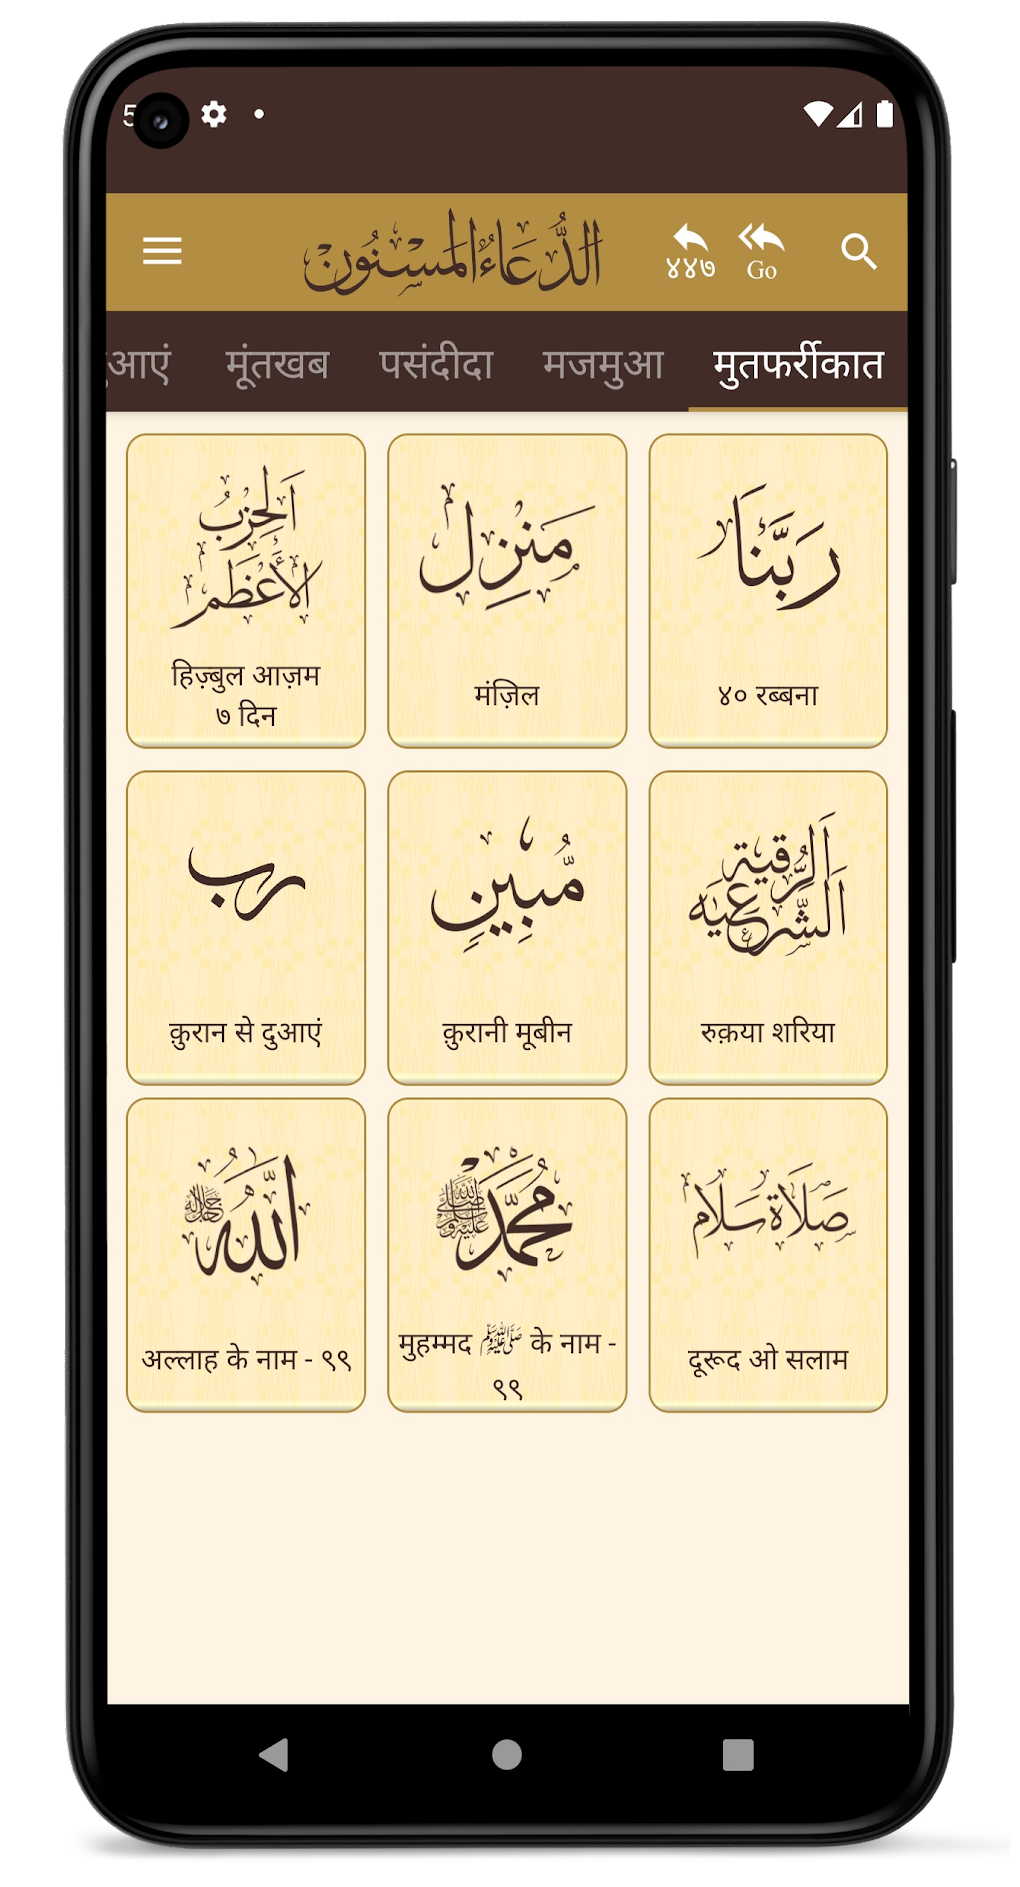 5
الدُّعَاءُ الْمَسْنُون
४४७ Go
ुआएं मूंतखब पसंदीदा मजमुआ मुतफर्रीकात
اَلْحِزْبُ
الْاَعْظَم
हिज़्बुल आज़म
७ दिन
مَنْزِل
मंज़िल
رَبَّنَا
४० रब्बना
رب
क़ुरान से दुआएं
مُّبِيْنٍ
क़ुरानी मूबीन
اَلرُّقية
اَلشَّرعِيَه
रुक़या शरिया
اَللّٰهُ جل جلاله
अल्लाह के नाम - ९९
مُحَمَّد ﷺ
मुहम्मद ﷺ के नाम -
९९
صَلَاة سَلَام
दूरूद ओ सलाम